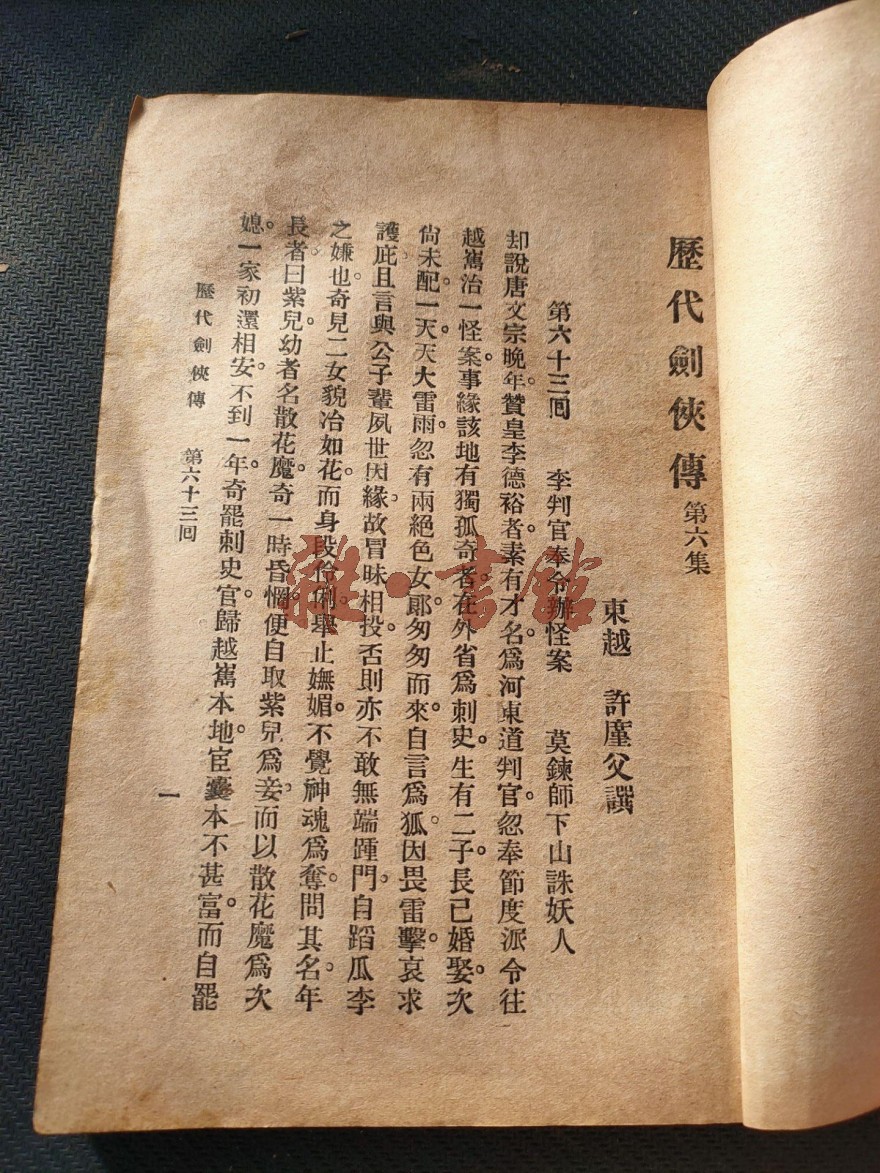 歷代劍俠傳 第六集
東越 許廑父譔
第六十三回 李判官奉令辦怪案 莫鍊師下山誅妖人
却說唐文宗晚年。贊皇李德裕者。素有才名。爲河東道判官。忽奉節度派令往
越嶲治一怪案。事緣該地有獨孤奇者。在外省爲刺史。生有二子。長已婚娶。次
尙未配。一天。天大雷雨。忽有兩絕色女郞。匆匆而來。自言爲狐。因畏雷擊。哀求
護庇。且言與公子輩夙世因緣。故冒昧相投。否則亦不敢無端踵門。自蹈瓜李
之嫌也。奇見二女貌冶如花。而身段伶俐。舉止嫵媚。不覺神魂爲奪。問其名。年
長者曰紫兒。幼者名散花魔。奇一時昏憒。便自取紫兒爲妾。而以散花魔爲次
媳。一家初還相安。不到一年。奇罷刺史官。歸越嶲本地。宦囊本不甚富。而自罷
歷代劍俠傳 第六十三回
一
雜·書館